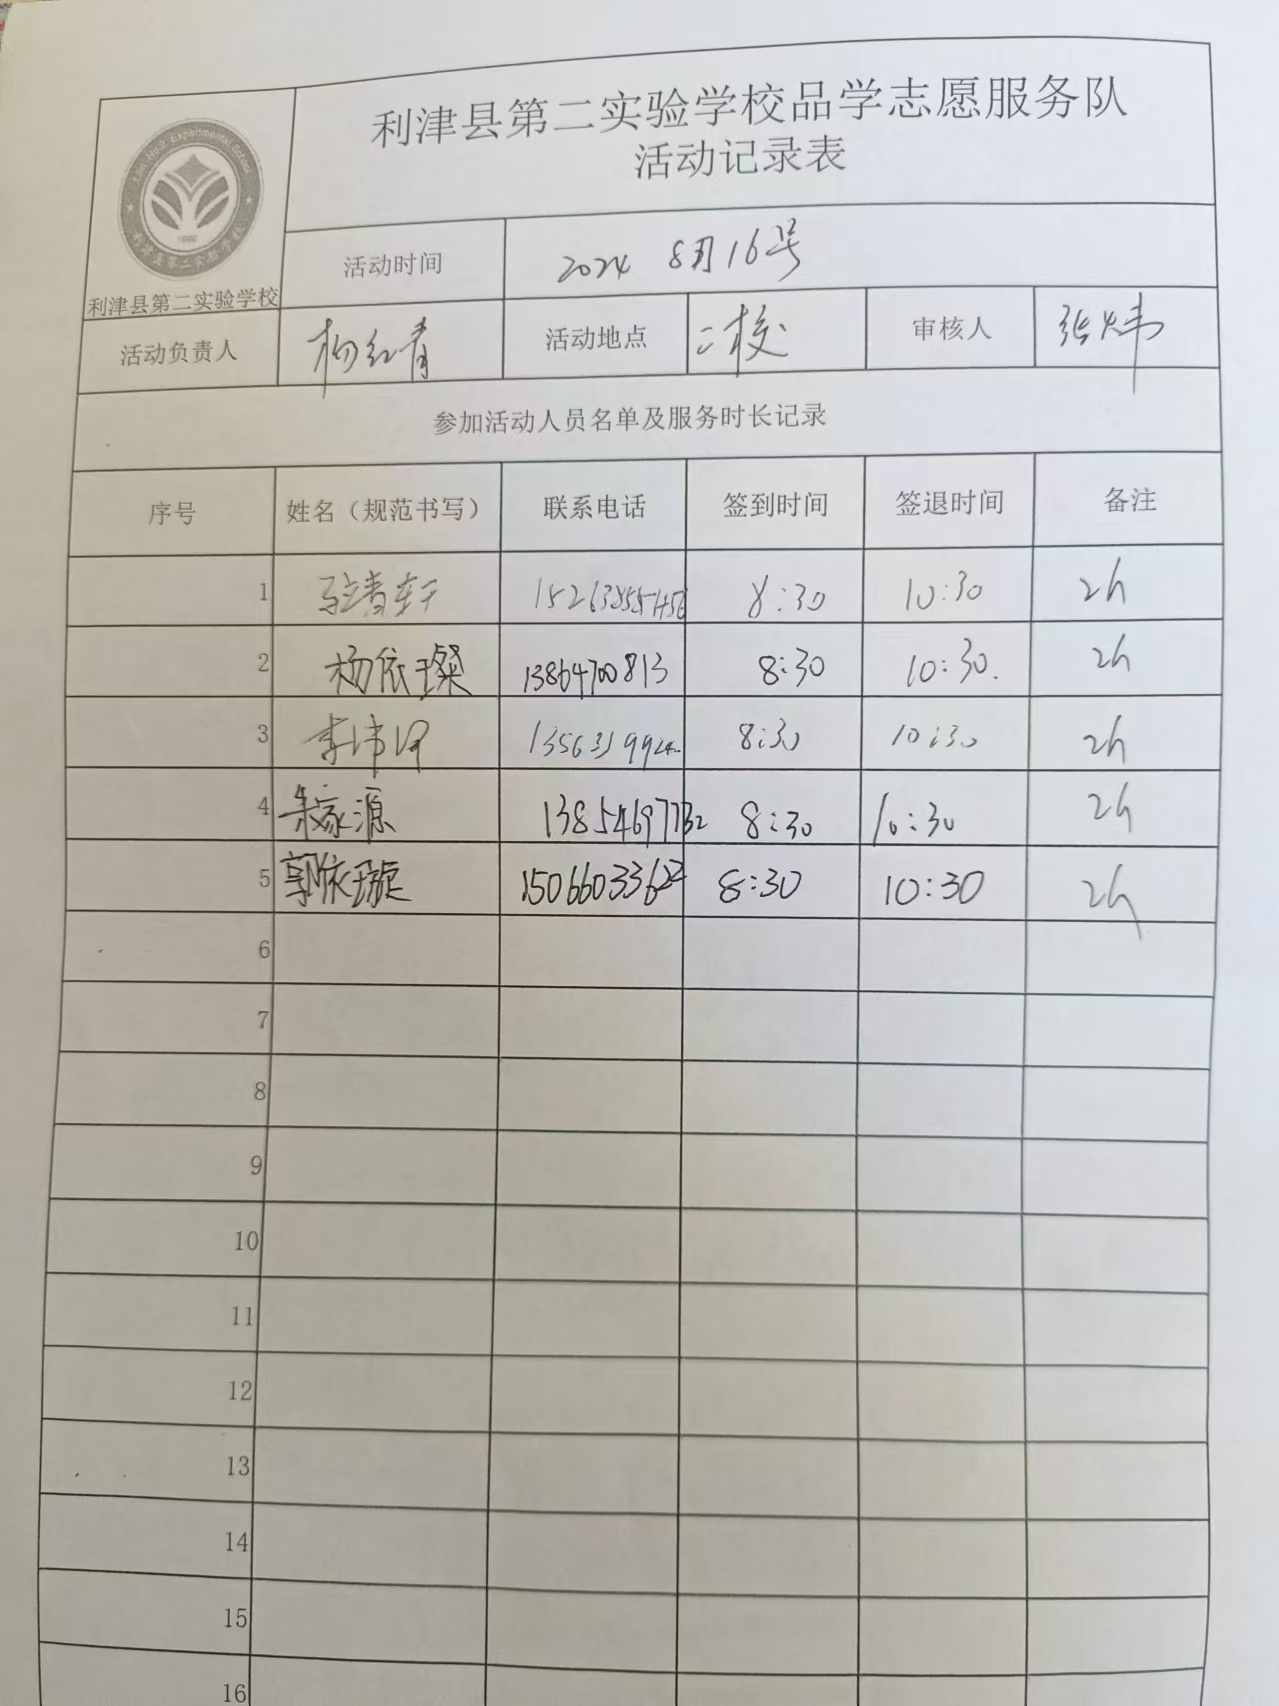 利津县第二实验学校品学志愿服务队
活动记录表
利津县第二实验学校
1990
利津县第二实验学校
活动时间 2024 8月16号
活动负责人 杨红青 活动地点 二校 审核人 张炜
参加活动人员名单及服务时长记录
序号 姓名（规范书写） 联系电话 签到时间 签退时间 备注
1 8:30 10:30 2h
2 杨依璨 13864700813 8:30 10:30. 2h
3 8:30 10:30 2h
4 朱家源 13854697732 8:30 10:30 2h
5 郭依璇 8:30 10:30 2h
6
7
8
9
10
11
12
13
14
15
16